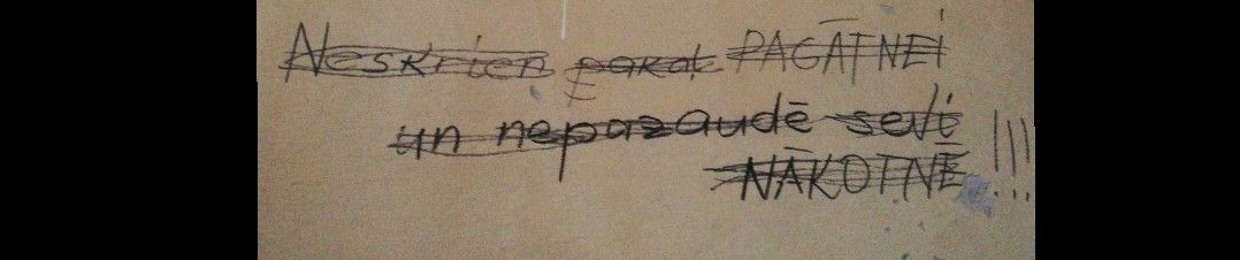 Neskrien pakaļ PAGĀTNEI
un nepazaudē sevi
NĀKOTNĒ !!!